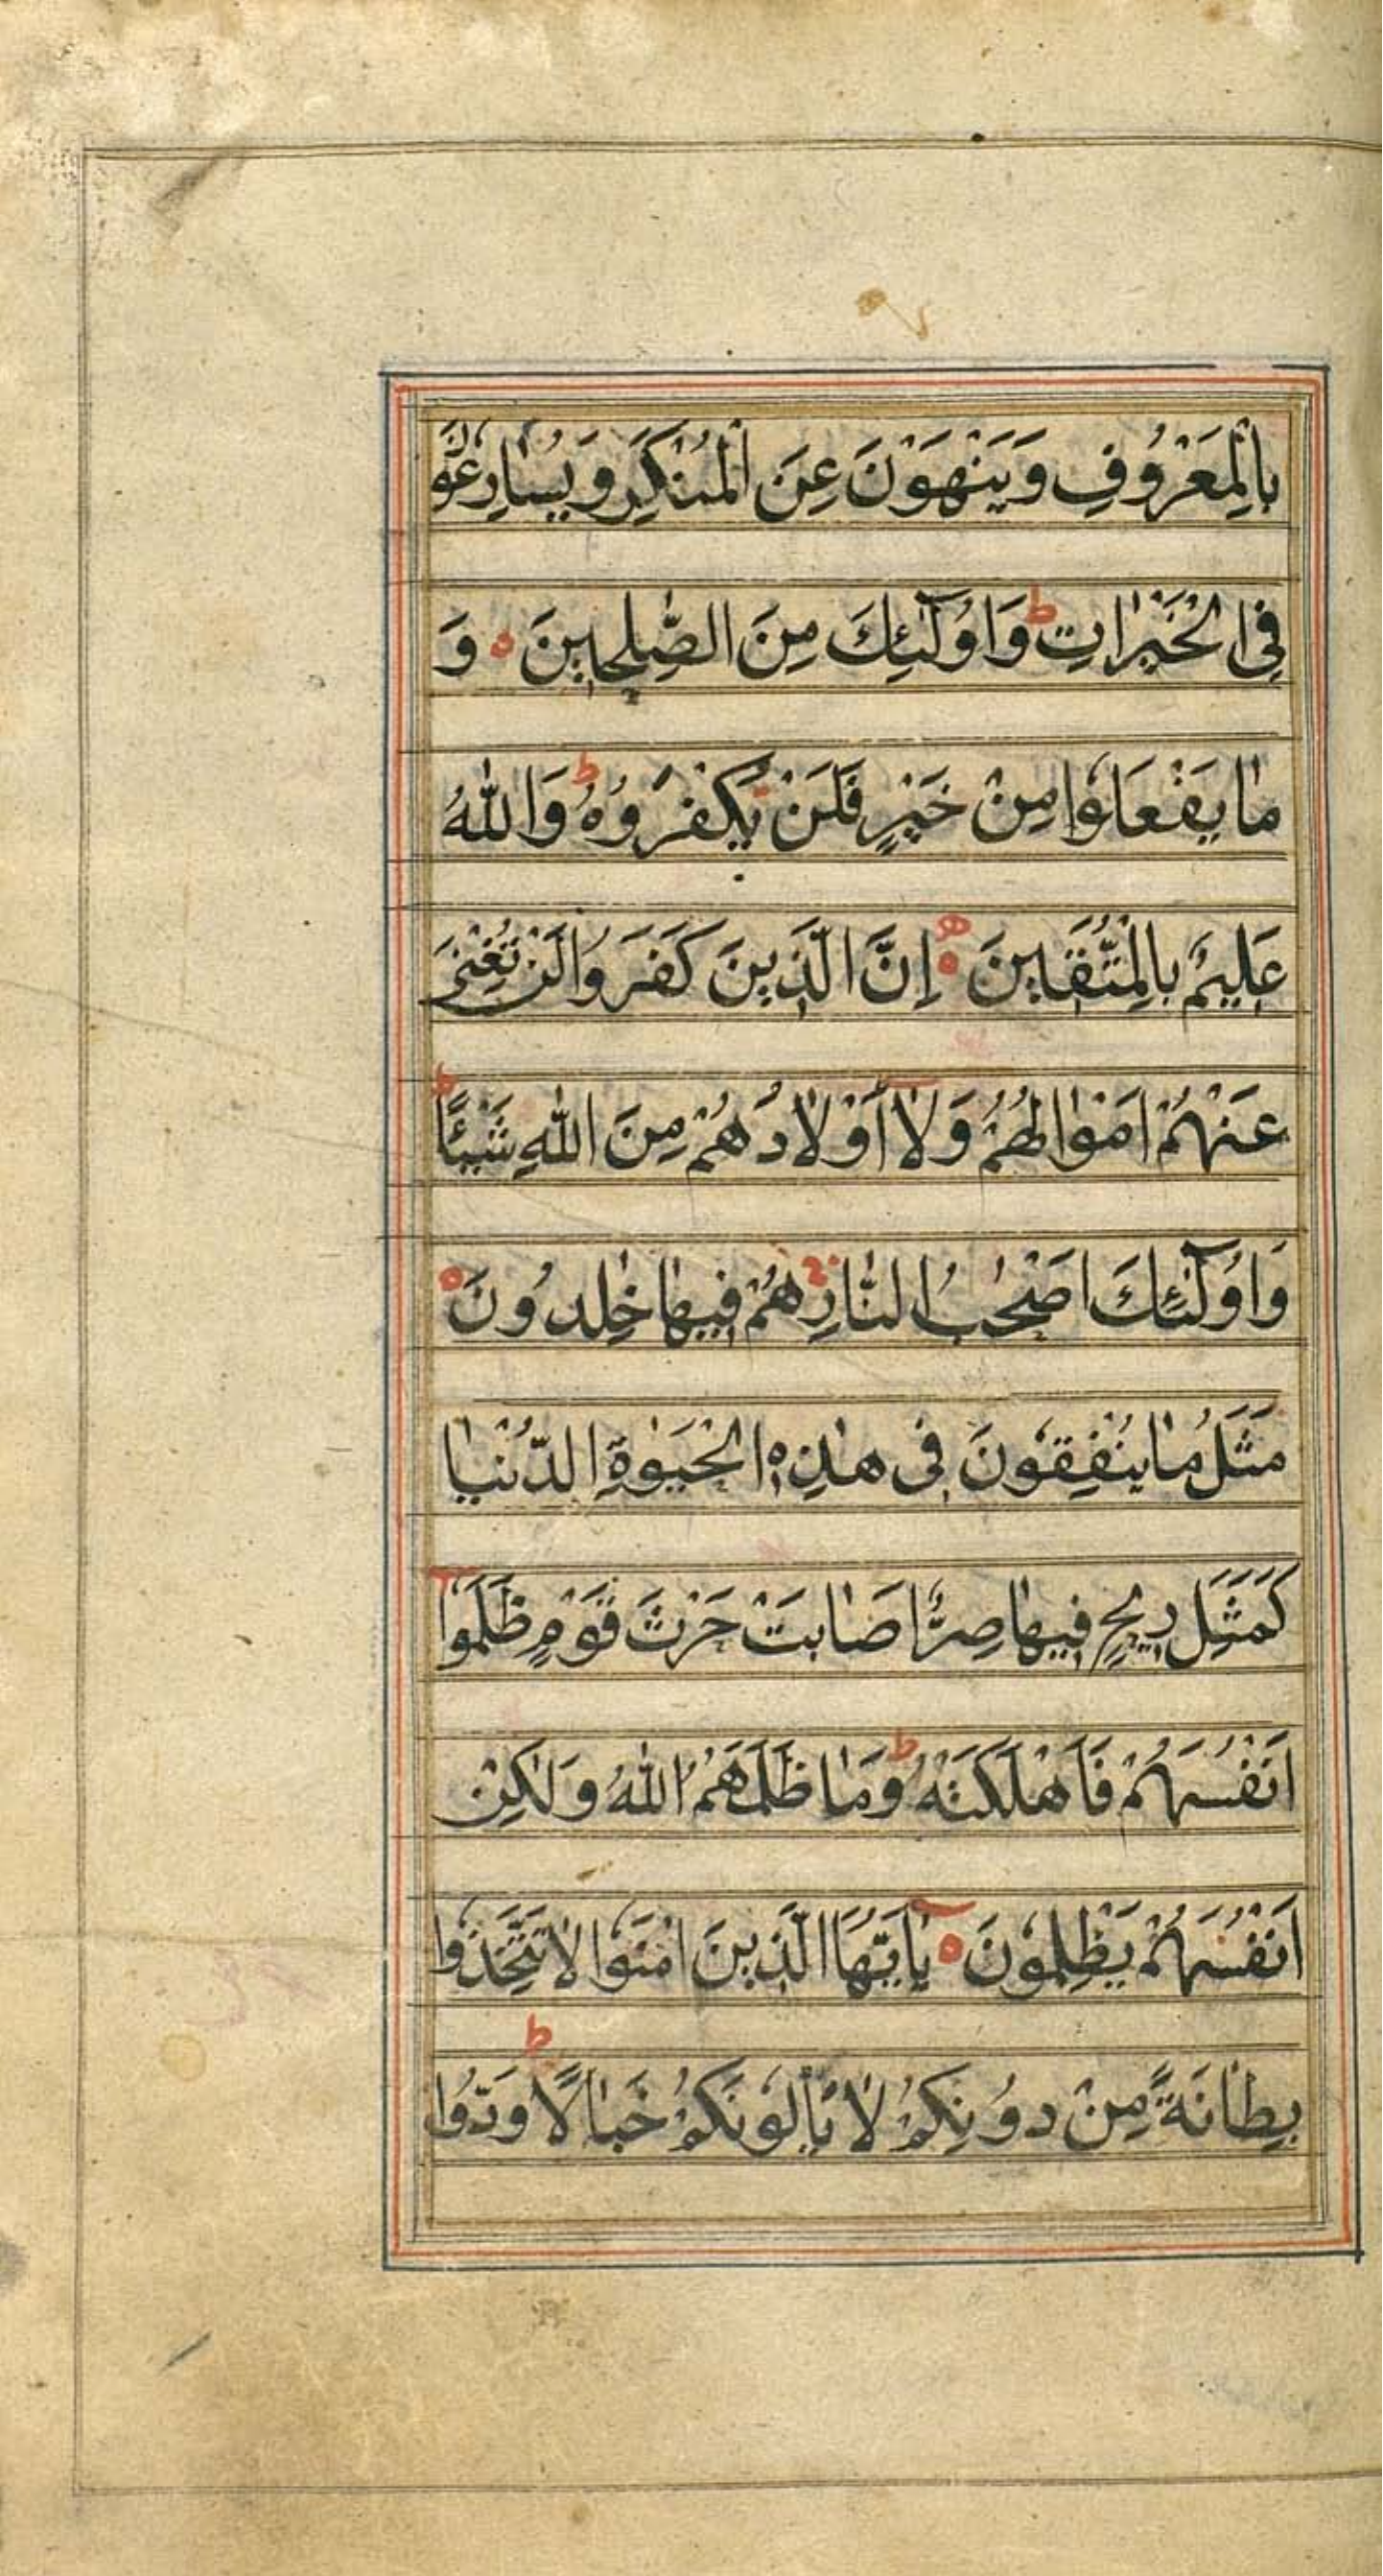 بِالْمَعْرُوفِ وَيَنْهَوْنَ عَنِ الْمُنْكَرِ وَيُسَارِعُوْنَ
فِى الْخَيْرَاتِ ط وَاُولٰٓئِكَ مِنَ الصّٰلِحِيْنَ ه وَ
مَا يَفْعَلُوْا مِنْ خَيْرٍ فَلَنْ يُكْفَرُوْهُ ط وَاللّٰهُ
عَلِيْمٌ بِالْمُتَّقِيْنَ ه اِنَّ الَّذِيْنَ كَفَرُوْا لَنْ تُغْنِىَ
عَنْهُمْ اَمْوَالُهُمْ وَلَا اَوْلَادُهُمْ مِنَ اللّٰهِ شَيْئًا ط
وَاُولٰٓئِكَ اَصْحٰبُ النَّارِ هُمْ فِيْهَا خٰلِدُوْنَ ه
مَثَلُ مَا يُنْفِقُوْنَ فِى هٰذِهِ الْحَيٰوةِ الدُّنْيَا
كَمَثَلِ رِيْحٍ فِيْهَا صِرٌّ اَصَابَتْ حَرْثَ قَوْمٍ ظَلَمُوْا
اَنْفُسَهُمْ فَاَهْلَكَتْهُ ط وَمَا ظَلَمَهُمُ اللّٰهُ وَلٰكِنْ
اَنْفُسَهُمْ يَظْلِمُوْنَ ه يٰاَيُّهَا الَّذِيْنَ اٰمَنُوْا لَا تَتَّخِذُوْا
بِطَانَةً مِنْ دُوْنِكُمْ لَا يَأْلُوْنَكُمْ خَبَالًا ط وَدُّوْا